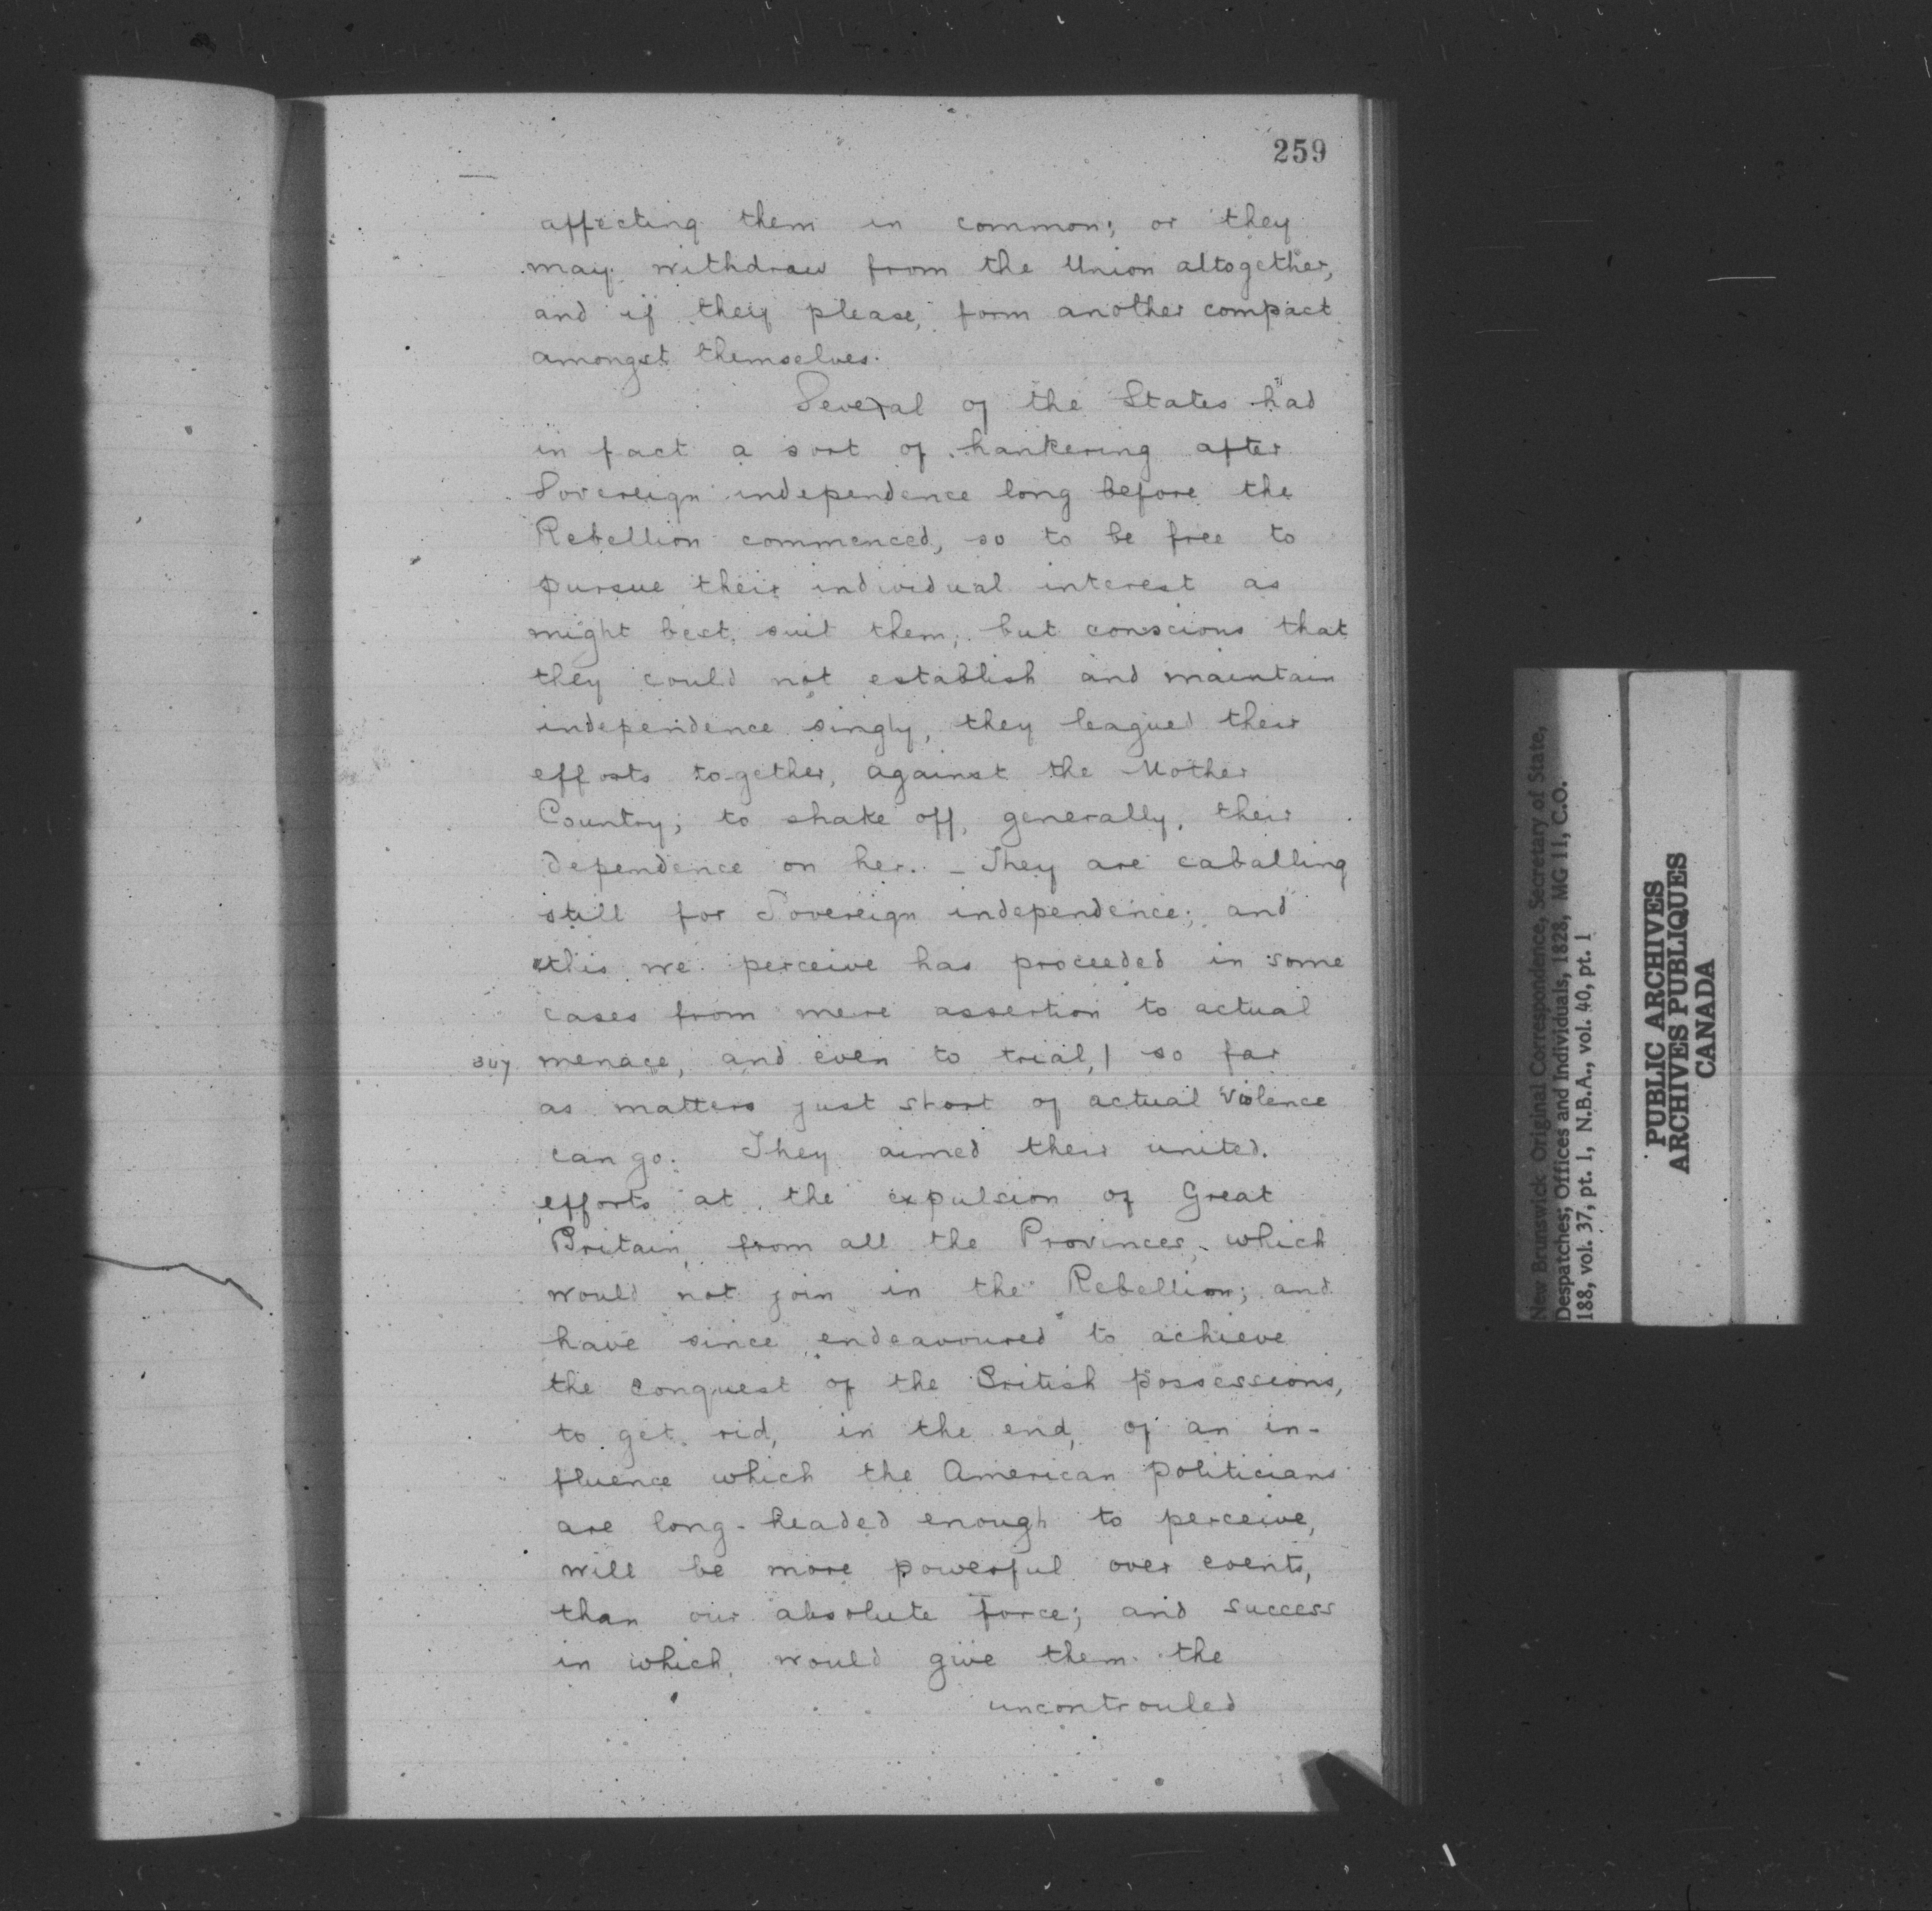 259
affecting them in common; or they
may withdraw from the Union altogether,
and if they please, form another compact
amongst themselves.
Several of the States had
in fact a sort of hankering after
Sovereign independence long before the
Rebellion commenced, so to be free to
pursue their individual interest as
might best suit them; but conscious that
they could not establish and maintain
independence singly, they leagued their
efforts to-gether, against the Mother
Country; to shake off, generally, their
dependence on her. - They are caballing
still for Sovereign independence; and
this we perceive has proceeded in some
cases from mere assertion to actual
367 menace, and even to trial, | so far
as matters just short of actual violence
can go. They aimed their united
efforts at the expulsion of Great
Britain, from all the Provinces, which
would not join in the Rebellion; and
have since endeavoured to achieve
the conquest of the British possessions,
to get rid, in the end, of an in-
fluence which the American politicians
are long-headed enough to perceive,
will be more powerful over events,
than our absolute force; and success
in which, would give them the
uncontrouled
New Brunswick Original Correspondence, Secretary of State,
Despatches; Offices and Individuals, 1828, MG 11, C.O.
188, vol. 37, pt. 1, N.B.A., vol. 40, pt. 1
PUBLIC ARCHIVES
ARCHIVES PUBLIQUES
CANADA